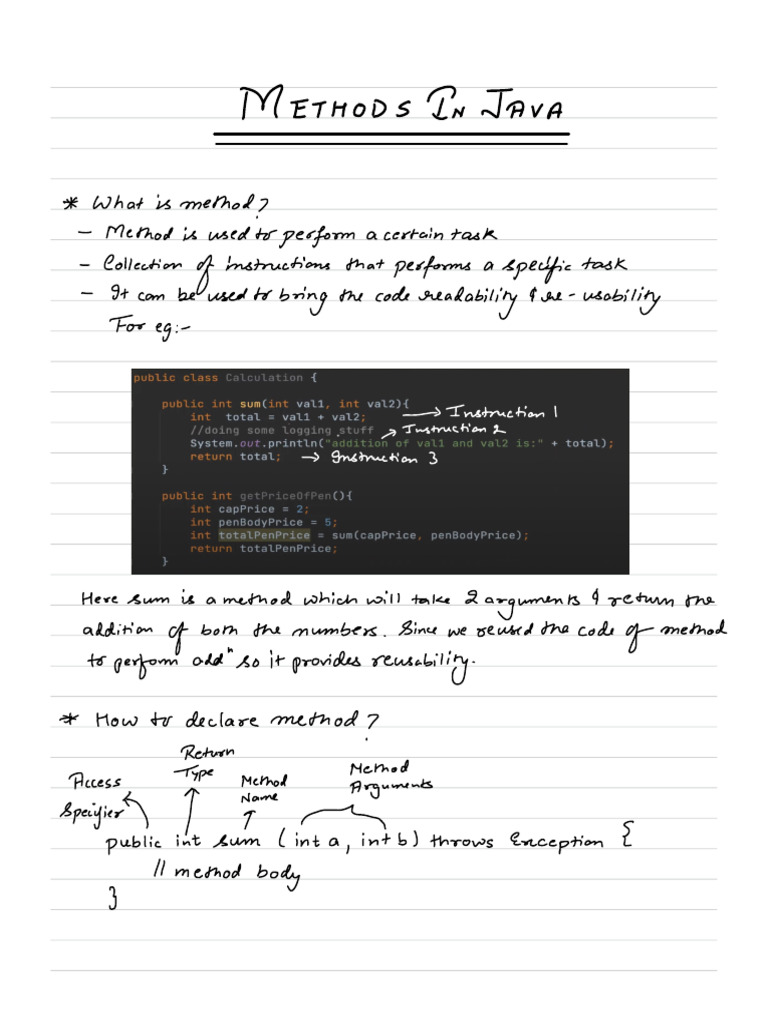 METHODS IN JAVA
* What is method?
- Method is used to perform a certain task
- Collection of instructions that performs a specific task
- It can be used to bring the code readability & re-usability
For eg:-
public class Calculation {
public int sum(int val1, int val2){
int total = val1 + val2; → Instruction 1
//doing some logging stuff → Instruction 2
System.out.println("addition of val1 and val2 is:" + total);
return total; → Instruction 3
}
public int getPriceOfPen(){
int capPrice = 2;
int penBodyPrice = 5;
int totalPenPrice = sum(capPrice, penBodyPrice);
return totalPenPrice;
}
Here sum is a method which will take 2 arguments & return the
addition of both the numbers. Since we reused the code of method
to perform addⁿ so it provides reusability.
* How to declare method?
Access
Specifier
Return
Type
Method
Name
Method
Arguments
public int sum (int a, int b) throws Exception {
// method body
}